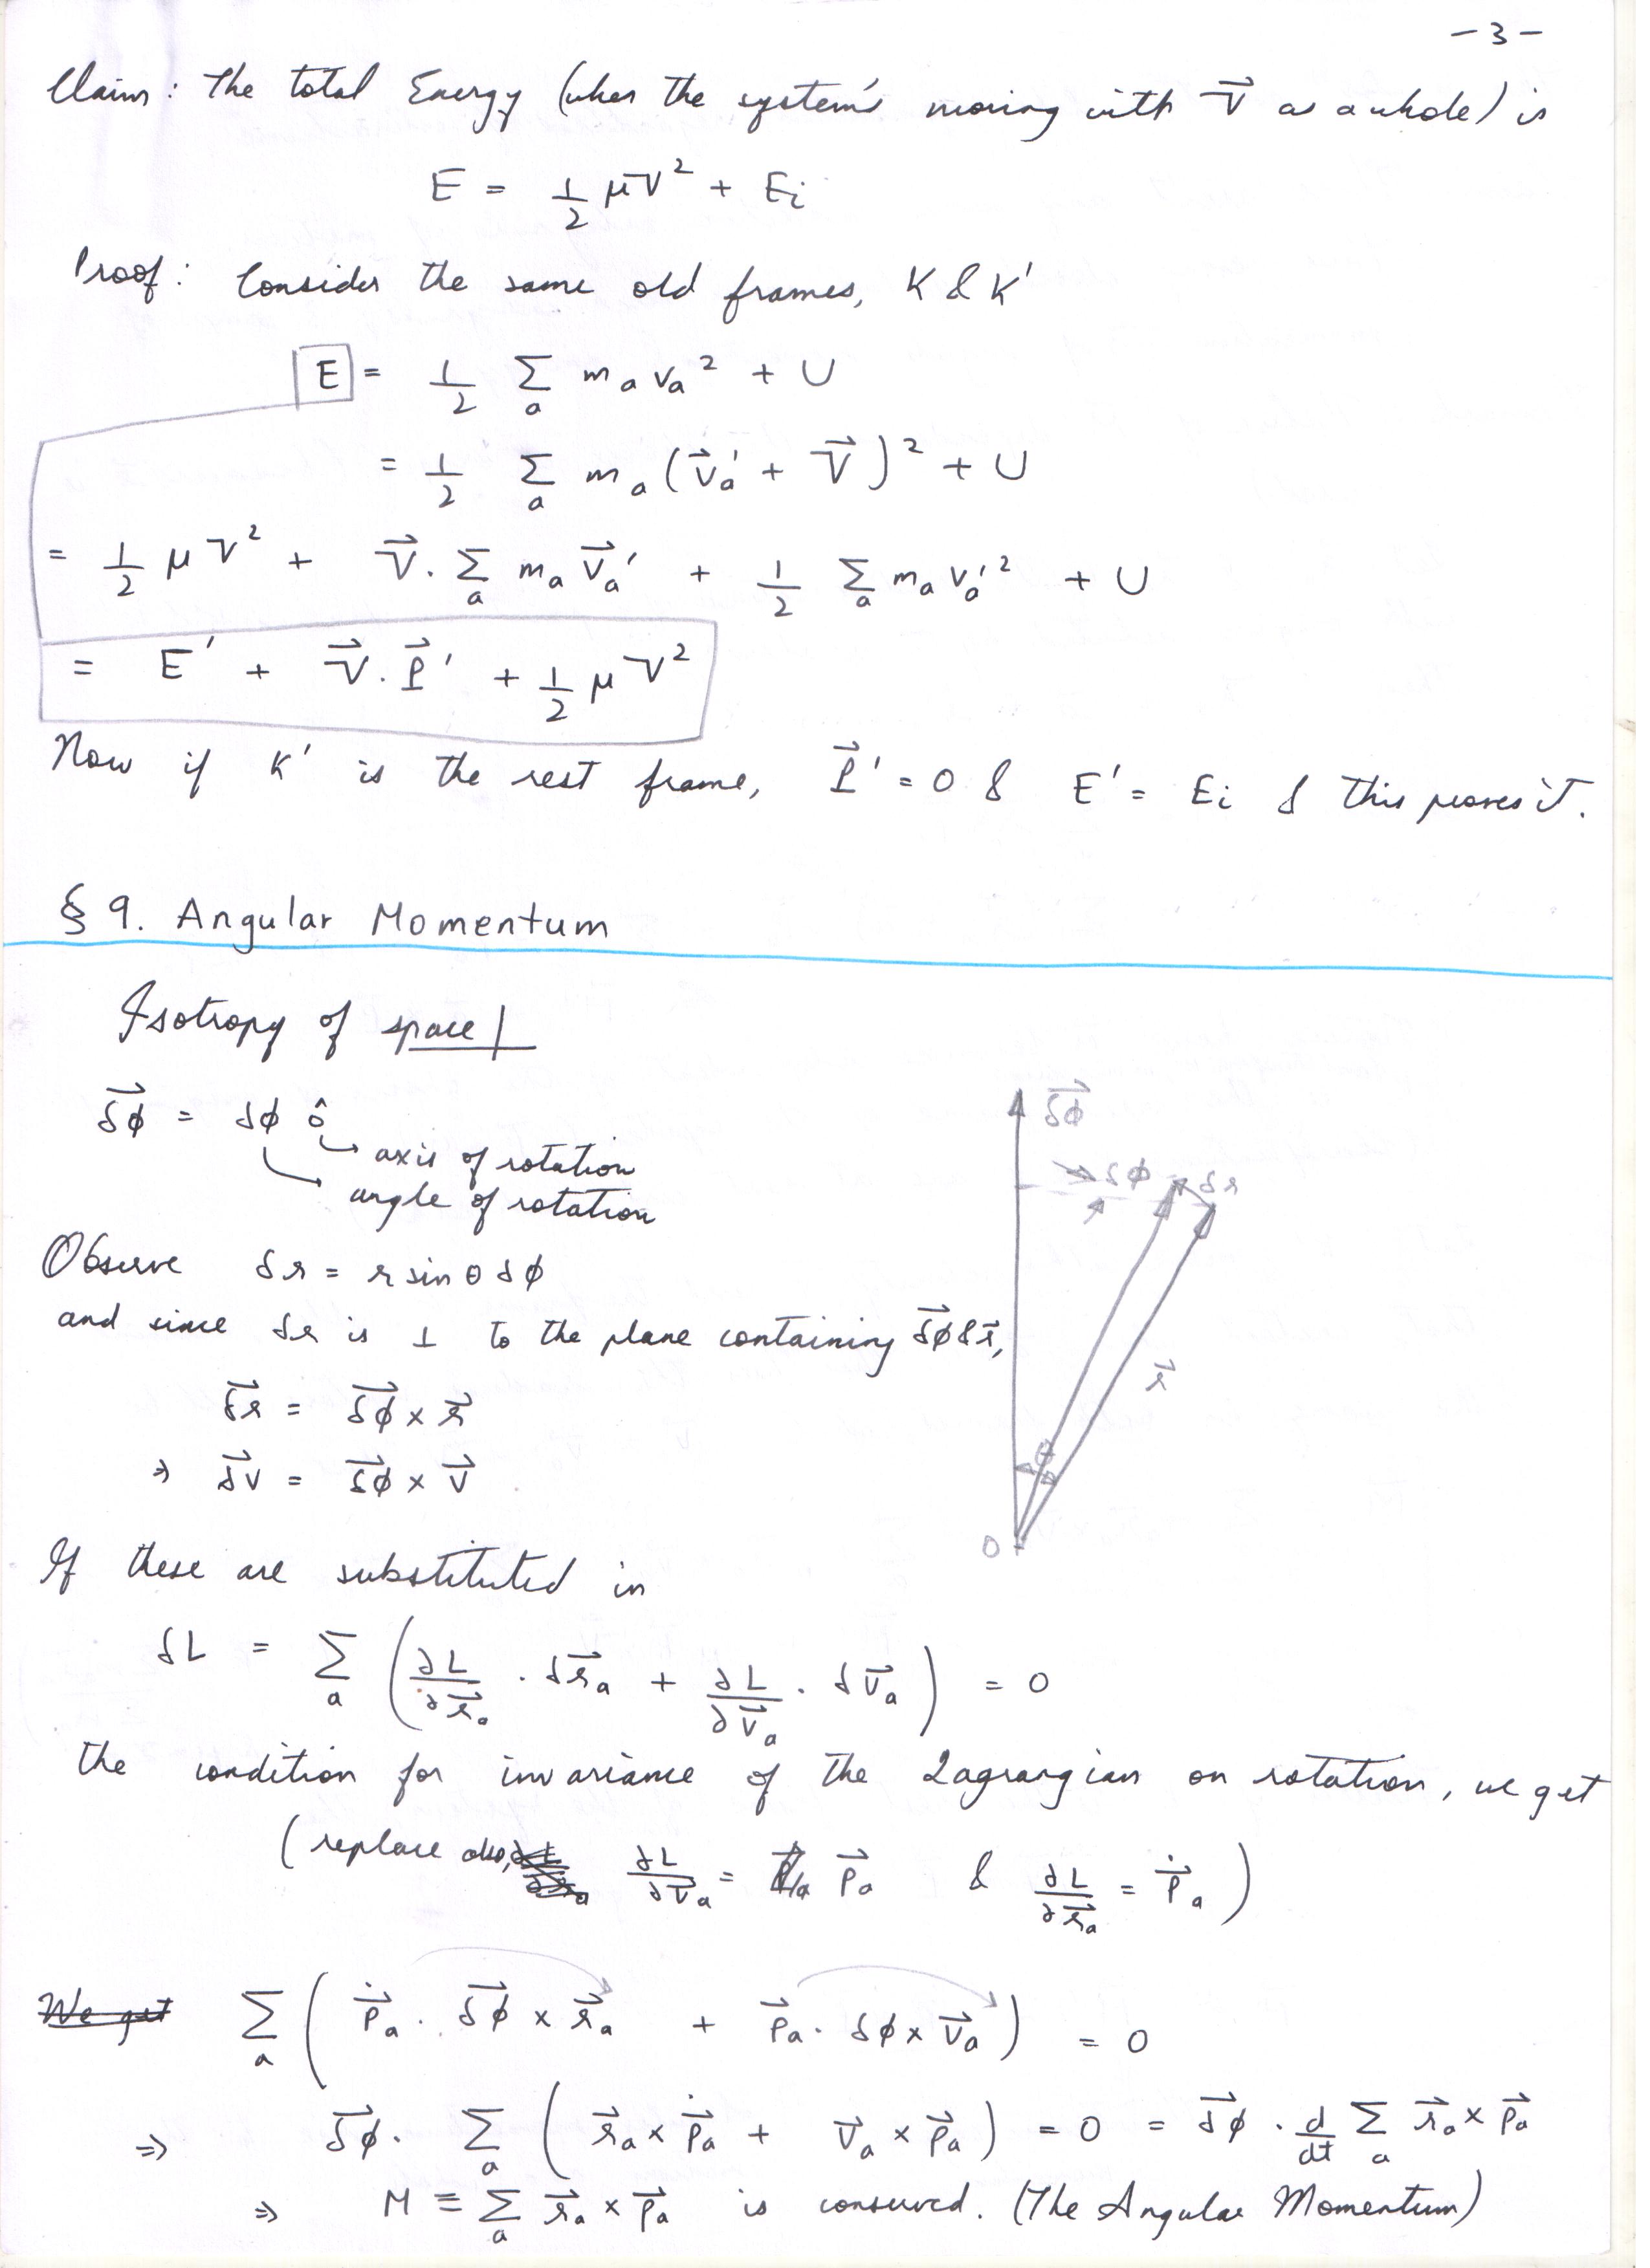 -3-
Claim: The total Energy (when the system's moving with V⃗ as a whole) is
E = 1/2 μV² + Ei
Proof: Consider the same old frames, K & K'
E = 1/2 Σ_a m_a v_a² + U
= 1/2 Σ_a m_a (v⃗_a' + V⃗)² + U
= 1/2 μV² + V⃗ . Σ_a m_a v⃗_a' + 1/2 Σ_a m_a v_a'² + U
= E' + V⃗ . P⃗' + 1/2 μV²
Now if K' is the rest frame, P⃗' = 0 & E' = Ei & this proves it.
§ 9. Angular Momentum
Isotropy of space
δϕ⃗ = δϕ ô
axis of rotation
angle of rotation
δϕ⃗
δϕ
δr
r⃗
θ
O
Observe δr = r sin θ δϕ
and since δr is ⊥ to the plane containing δϕ⃗ & r⃗,
δr⃗ = δϕ⃗ × r⃗
⇒ δv⃗ = δϕ⃗ × v⃗
If these are substituted in
δL = Σ_a (∂L/∂r⃗_a . δr⃗_a + ∂L/∂v⃗_a . δv⃗_a) = 0
the condition for invariance of the Lagrangian on rotation, we get
(replace also, ∂L/∂v⃗_a = p⃗_a & ∂L/∂r⃗_a = ṗ⃗_a)
We get Σ_a (ṗ⃗_a . δϕ⃗ × r⃗_a + p⃗_a . δϕ × v⃗_a) = 0
⇒ δϕ⃗ . Σ_a (r⃗_a × ṗ⃗_a + v⃗_a × p⃗_a) = 0 = δϕ⃗ . d/dt Σ_a r⃗_a × p⃗_a
⇒ M ≡ Σ_a r⃗_a × p⃗_a is conserved. (The Angular Momentum)